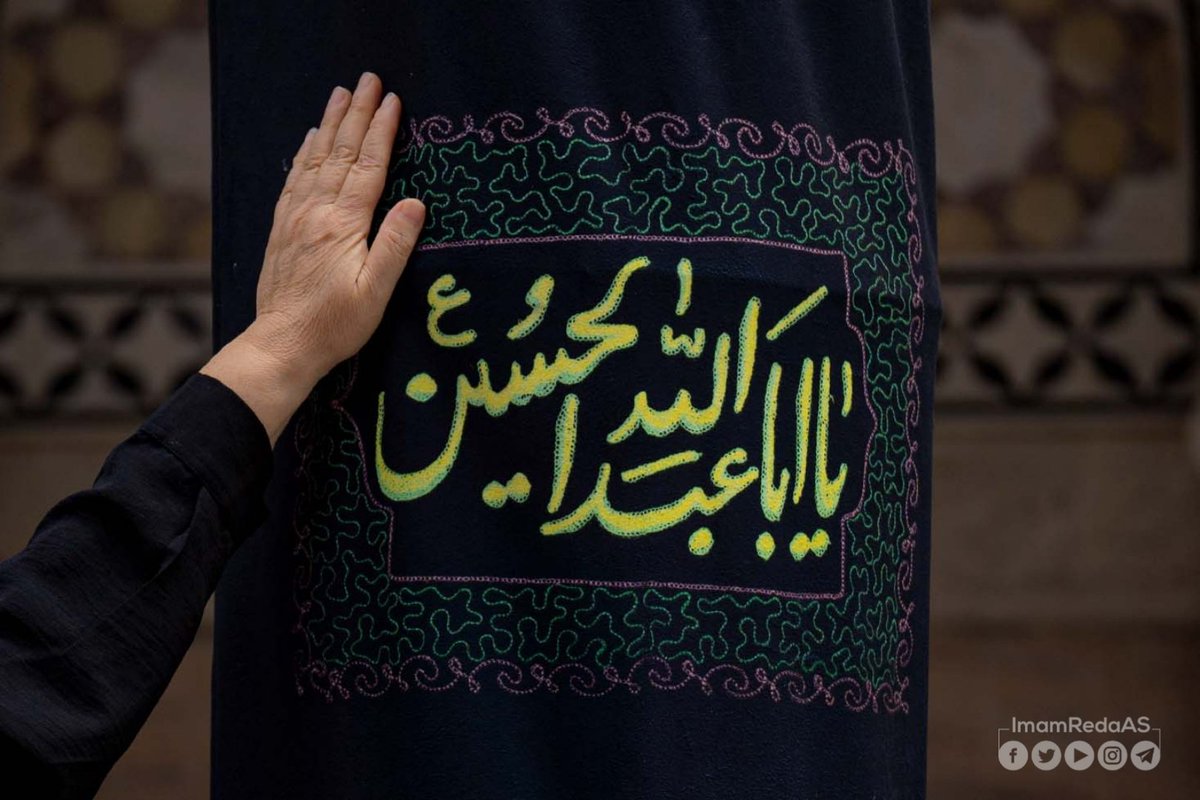 یا اباعبدالله الحسین ع
ImamRedaAS